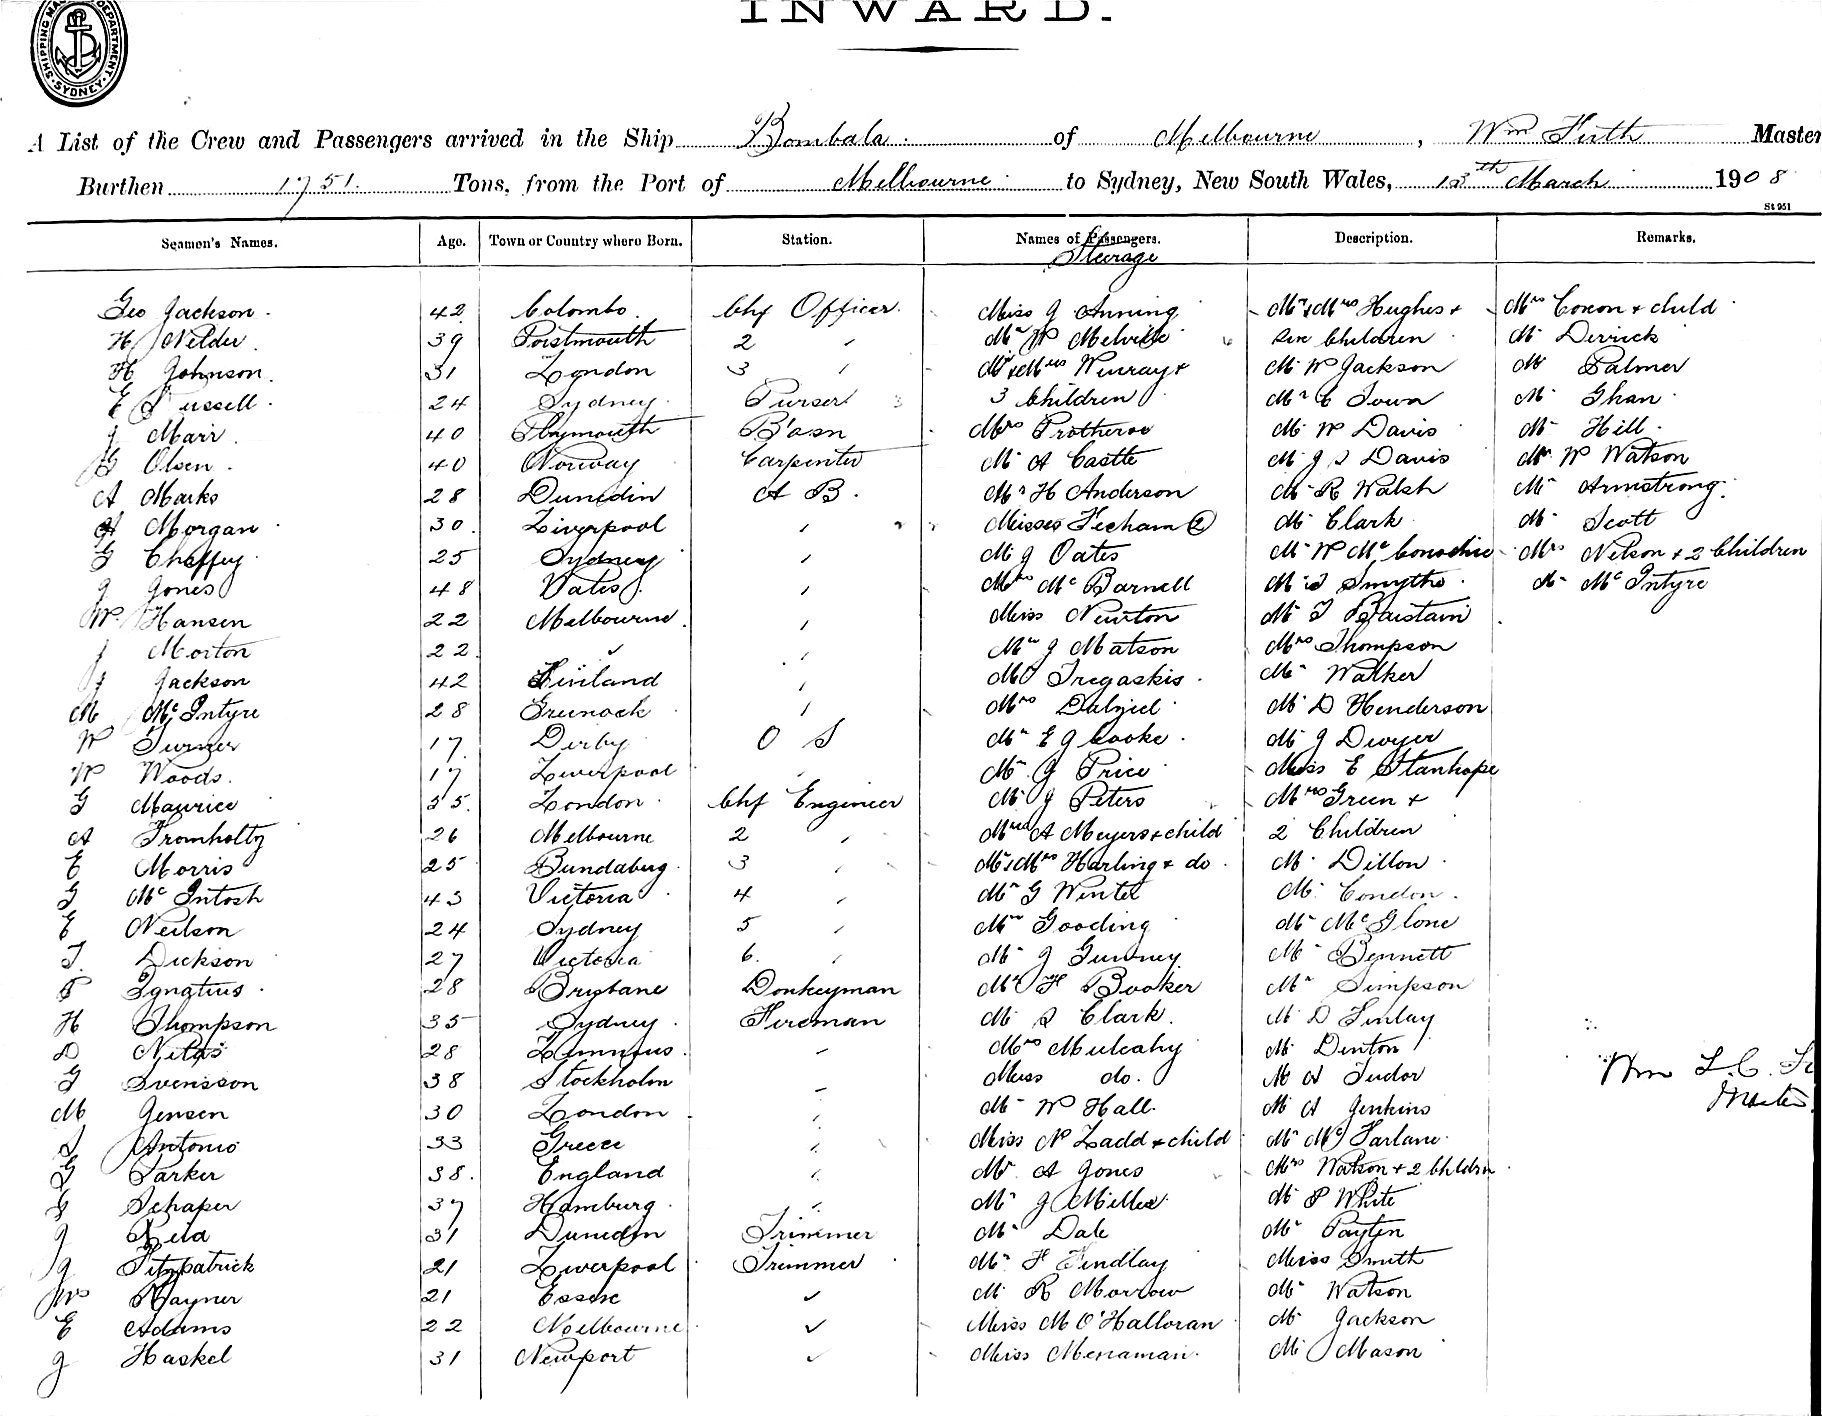 INWARD.
SHIPPING MASTER'S DEPARTMENT · SYDNEY ·
A List of the Crew and Passengers arrived in the Ship Bombala. of Melbourne, Wm Firth Master
Burthen 1751. Tons, from the Port of Melbourne to Sydney, New South Wales, 13th March 1908
St 951
Seamen's Names. Age. Town or Country where Born. Station. Names of Passengers. Description. Remarks.
Steerage
Geo Jackson. 42 Colombo. Chf Officer. Miss J Anning Mr & Mrs Hughes & Mrs Coxon & child
H Nelder. 39 Portsmouth 2 Mr W Melville six Children Mr Derrick
H Johnson. 31 London 3 Mr & Mrs Winray & Mr W Jackson Mr Palmer
E Russell. 24 Sydney Purser 3 Children Mr C Town Mr Ghan
J Marr. 40 Plymouth B'osn Mrs Protheroe Mr W Davis Mr Hill.
G Olsen. 40 Norway Carpenter Mr A Castle Mr J S Davis Mr W Watson
A Marks 28 Dunedin A B. Mr H Anderson Mr R Walsh Mr Armstrong.
A Morgan 30. Liverpool Misses Fecham (2) Mr Clark Mr Scott
G Chaffey 25 Sydney Mr J Oates Mr W McConochie Mrs Nelson & 2 Children
J Jones 48 Wales. Mrs McBarnell Mr J Smythe. Mr McIntyre
W. Hansen 22 Melbourne. Miss Newton Mr T Bairstain
J Morton 22. Mr J Matson Mrs Thompson
J Jackson 42 Finland Mr Tregaskis. Mr Walker
M McIntyre 28 Greenock Mrs Dalziel Mr D Henderson
W Turner 17. Derby. O S Mr E J Cooke. Mr J Dwyer
W Woods. 17 Liverpool Mr J Price Miss E Stanhope
G Maurice 35. London. Chf Engineer Mr J Peters Mrs Green &
A Tromholtz 26 Melbourne 2 Mrs A Meyers & child 2 Children
E Morris 25 Bundaberg. 3 Mr & Mrs Harling & do. Mr Dillon.
G McIntosh 43 Victoria 4 Mr G Winter Mr Condon.
E Neilson 24 Sydney 5 Mr Gooding Mr McGlone
T. Dickson 27 Victoria 6. Mr J Gurney Mr Bennett
F Ignatius. 28 Brisbane Donkeyman Mr H Booker Mr Simpson
H Thompson 35 Sydney. Fireman Mr S Clark. Mr D Finlay
D 28 Mrs Mulcahy Mr Denton
G Svensson 38 Stockholm Miss do. Mr A Tudor
M Jensen 30 London Mr W Hall. Mr A Jenkins
S Antonio 33 Greece Miss N Ladd & child Mr McFarlane.
G Parker 38. England Mr A Jones Mrs Watson & 2 Chldrn
G Schaper 37 Hamburg. Mr J Miller Mr P White
J Reid 31 Dunedin Trimmer Mr Dale Mr Payten
J Fitzpatrick 21 Liverpool Trimmer Mr F Findlay Miss Smith
Wm Rayner 21 Essex Mr R Morrow Mr Watson
E Adams 22 Melbourne Miss M O'Halloran Mr Jackson
J Haskel 31 Newport Miss Merraman. Mr J Mason
Wm L. C. Fi
Master